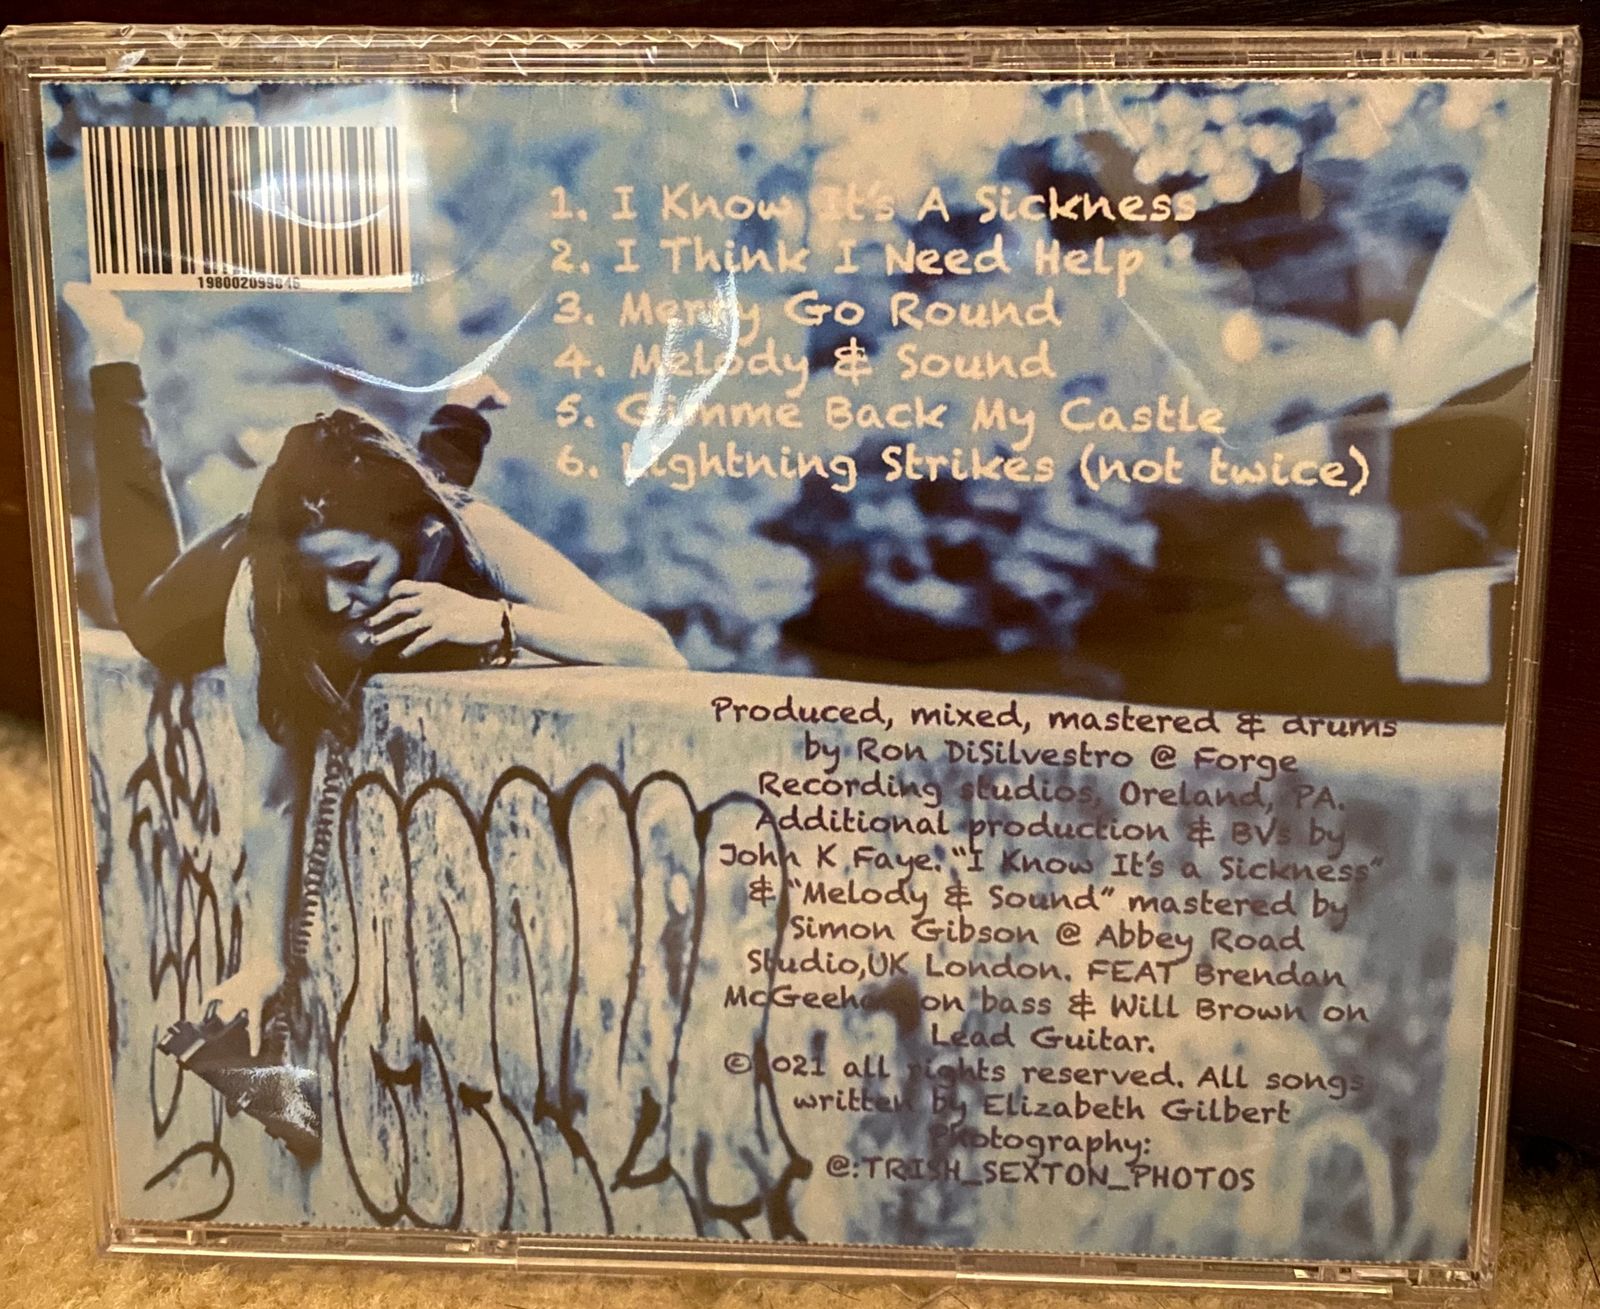 198002099846
1. I Know It's A Sickness
2. I Think I Need Help
3. Merry Go Round
4. Melody & Sound
5. Gimme Back My Castle
6. Lightning Strikes (not twice)
Produced, mixed, mastered & drums
by Ron DiSilvestro @ Forge
Recording studios, Oreland, PA.
Additional production & BVs by
John K Faye. "I Know It's a Sickness"
& "Melody & Sound" mastered by
Simon Gibson @ Abbey Road
Studio,UK London. FEAT Brendan
McGeehan on bass & Will Brown on
Lead Guitar.
© 2021 all rights reserved. All songs
written by Elizabeth Gilbert
Photography:
@:TRISH_SEXTON_PHOTOS